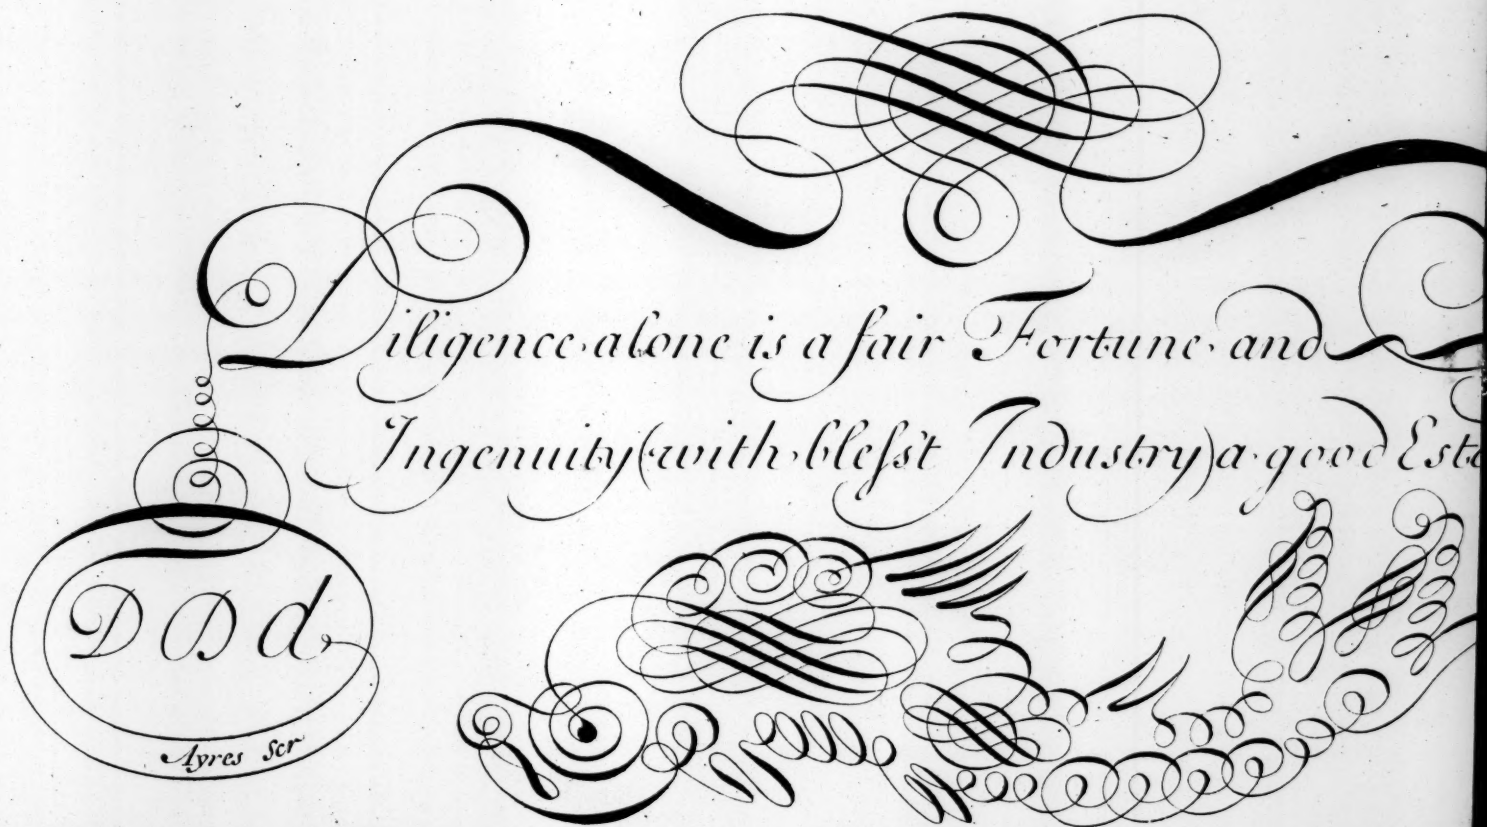 Diligence alone is a fair Fortune and
Ingenuity (with blesst Industry) a good Esta
D D d
Ayres Scr